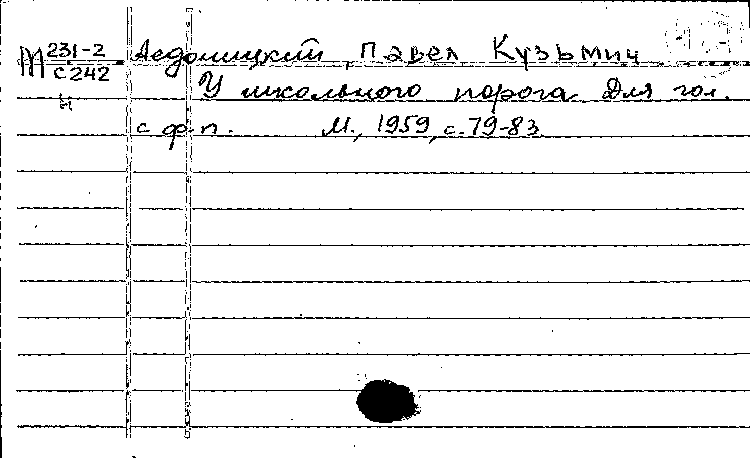 М 231-2 Аедоницкий, Павел Кузьмич
С 242 У школьного порога. Для гол.
Н с ф-п. М., 1959, с. 79-83